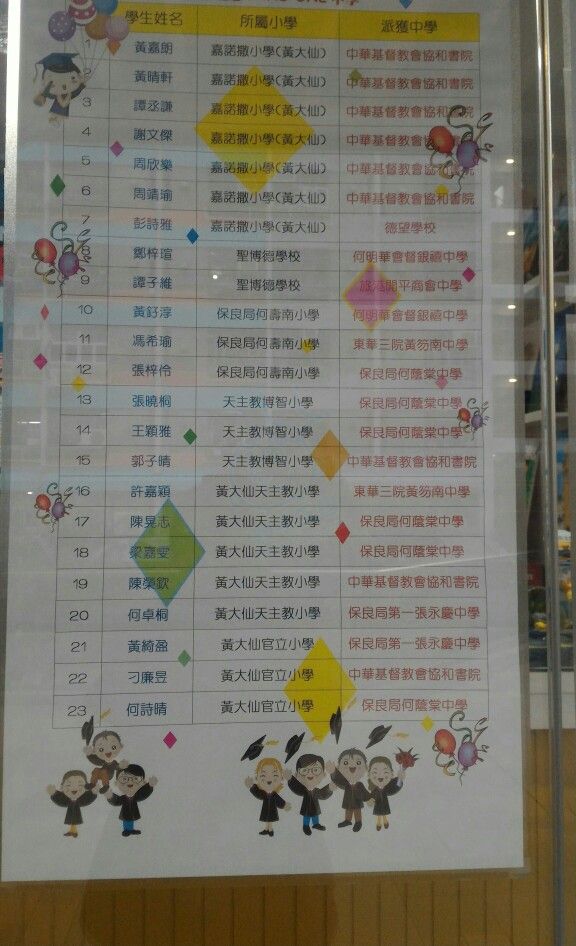 學生姓名 所屬小學 派獲中學
1 黃嘉朗 嘉諾撒小學(黃大仙) 中華基督教會協和書院
2 黃晴軒 嘉諾撒小學(黃大仙) 中華基督教會協和書院
3 譚丞謙 嘉諾撒小學(黃大仙) 中華基督教會協和書院
4 謝文傑 嘉諾撒小學(黃大仙) 中華基督教會協和書院
5 周欣樂 嘉諾撒小學(黃大仙) 中華基督教會協和書院
6 周靖瑜 嘉諾撒小學(黃大仙) 中華基督教會協和書院
7 彭詩雅 嘉諾撒小學(黃大仙) 德望學校
8 鄭梓瑄 聖博德學校 何明華會督銀禧中學
9 譚子維 聖博德學校 旅港開平商會中學
10 黃釨淳 保良局何壽南小學 何明華會督銀禧中學
11 馮希瑜 保良局何壽南小學 東華三院黃笏南中學
12 張梓伶 保良局何壽南小學 保良局何蔭棠中學
13 張曉桐 天主教博智小學 保良局何蔭棠中學
14 王穎雅 天主教博智小學 保良局何蔭棠中學
15 郭子晴 天主教博智小學 中華基督教會協和書院
16 許嘉穎 黃大仙天主教小學 東華三院黃笏南中學
17 陳晃志 黃大仙天主教小學 保良局何蔭棠中學
18 梁嘉雯 黃大仙天主教小學 保良局何蔭棠中學
19 陳榮欽 黃大仙天主教小學 中華基督教會協和書院
20 何卓桐 黃大仙天主教小學 保良局第一張永慶中學
21 黃綺盈 黃大仙官立小學 保良局第一張永慶中學
22 刁廉昱 黃大仙官立小學 中華基督教會協和書院
23 何詩晴 黃大仙官立小學 保良局何蔭棠中學